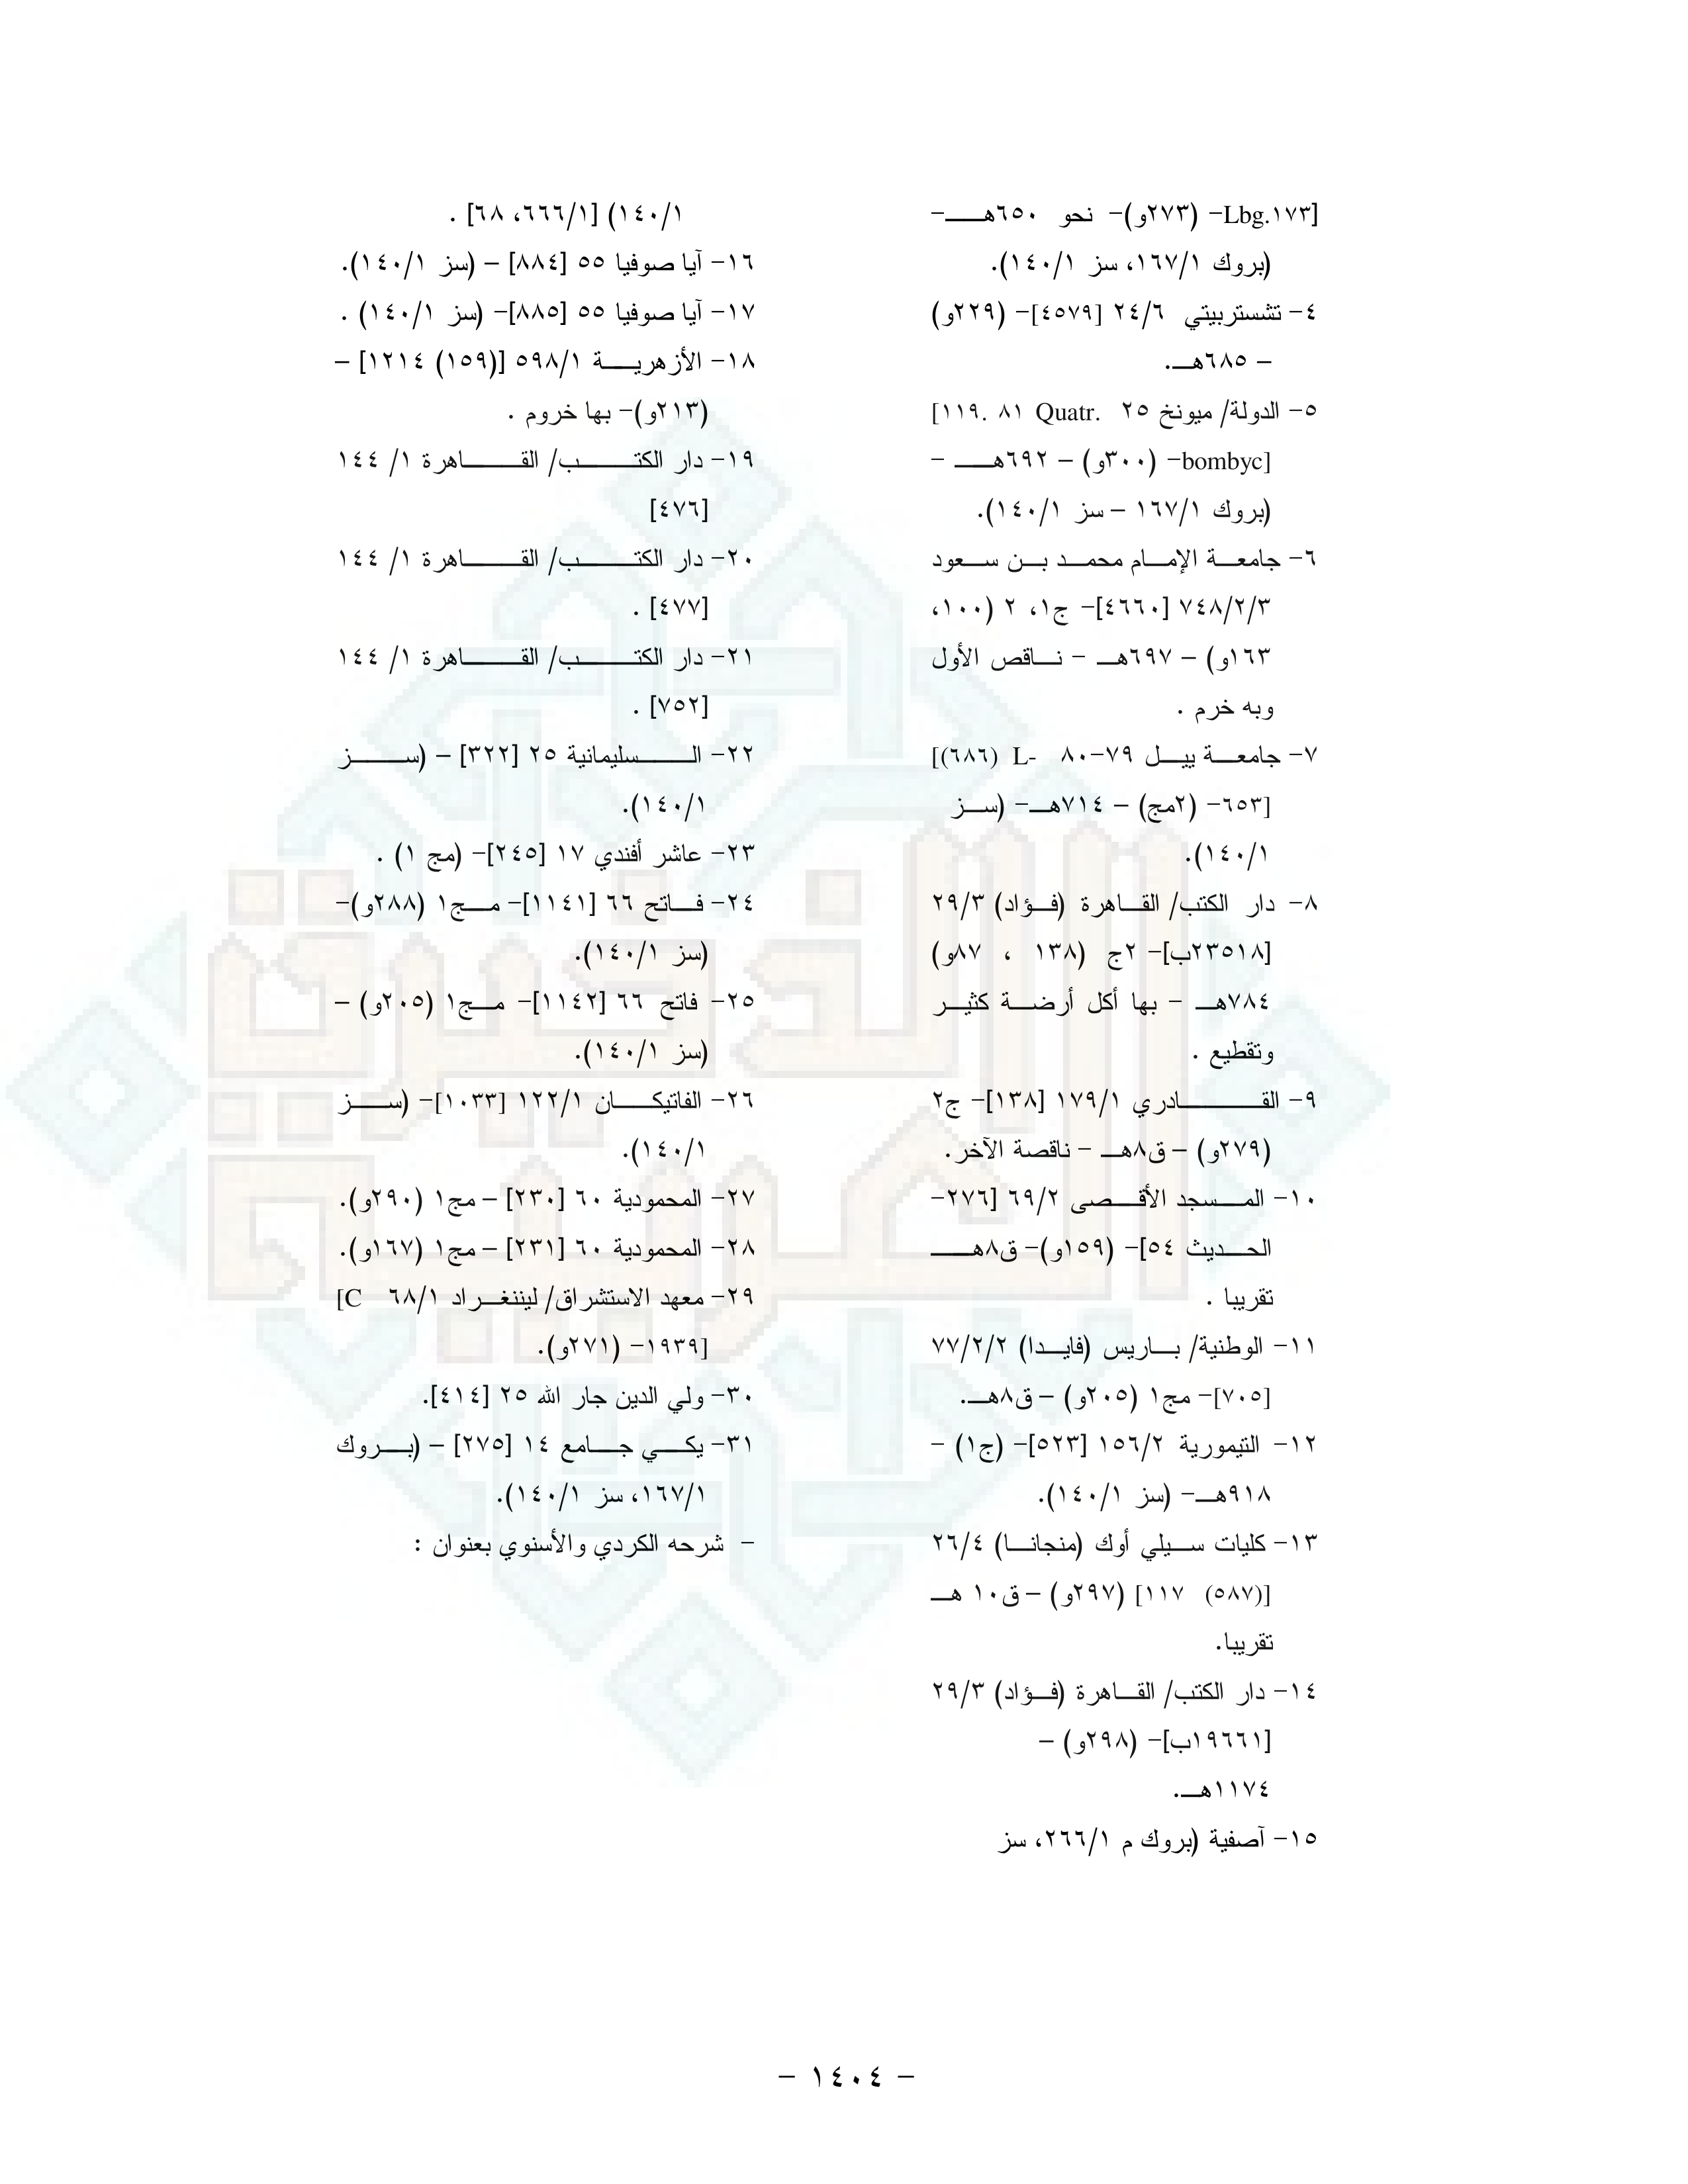 [Lbg.١٧٣- (٢٧٣و)- نحو ٦٥٠هـ-
(بروك ١/١٦٧، سز ١/١٤٠).
٤- تشستربيتي ٢٤/٦ [٤٥٧٩]- (٢٢٩و)
- ٦٨٥هـ.
٥- الدولة/ ميونخ ٢٥ Quatr. ٨١ .١١٩]
[bombyc- (٣٠٠و) - ٦٩٢هـ -
(بروك ١/١٦٧ - سز ١/١٤٠).
٦- جامعة الإمام محمد بن سعود
٧٤٨/٢/٣ [٤٦٦٠]- ج١، ٢ (١٠٠،
١٦٣و) - ٦٩٧هـ - ناقص الأول
وبه خرم .
٧- جامعة ييل ٧٩-٨٠ L- (٦٨٦)]
[٦٥٣- (٢مج) - ٧١٤هـ- (سز
١/١٤٠).
٨- دار الكتب/ القاهرة (فؤاد) ٢٩/٣
[٢٣٥١٨ب]- ٢ج (١٣٨ ، ٨٧و)
٧٨٤هـ - بها أكل أرضة كثير
وتقطيع .
٩- القادري ١٧٩/١ [١٣٨]- ج٢
(٢٧٩و) - ق٨هـ - ناقصة الآخر.
١٠- المسجد الأقصى ٦٩/٢ [٢٧٦-
الحديث ٥٤]- (١٥٩و)- ق٨هـ
تقريبا .
١١- الوطنية/ باريس (فايدا) ٧٧/٢/٢
[٧٠٥]- مج١ (٢٠٥و) - ق٨هـ.
١٢- التيمورية ١٥٦/٢ [٥٢٣]- (ج١) -
٩١٨هـ- (سز ١/١٤٠).
١٣- كليات سيلي أوك (منجانا) ٢٦/٤
[(٥٨٧) ١١٧] (٢٩٧و) - ق١٠ هـ
تقريبا.
١٤- دار الكتب/ القاهرة (فؤاد) ٢٩/٣
[١٩٦٦١ب]- (٢٩٨و) -
١١٧٤هـ.
١٥- آصفية (بروك م ٢٦٦/١، سز
١/١٤٠) [٦٦٦/١، ٦٨] .
١٦- آيا صوفيا ٥٥ [٨٨٤] - (سز ١/١٤٠).
١٧- آيا صوفيا ٥٥ [٨٨٥]- (سز ١/١٤٠) .
١٨- الأزهرية ٥٩٨/١ [(١٥٩) ١٢١٤] -
(٢١٣و)- بها خروم .
١٩- دار الكتب/ القاهرة ١/ ١٤٤
[٤٧٦]
٢٠- دار الكتب/ القاهرة ١/ ١٤٤
[٤٧٧] .
٢١- دار الكتب/ القاهرة ١/ ١٤٤
[٧٥٢] .
٢٢- السليمانية ٢٥ [٣٢٢] - (سز
١/١٤٠).
٢٣- عاشر أفندي ١٧ [٢٤٥]- (مج ١) .
٢٤- فاتح ٦٦ [١١٤١]- مج١ (٢٨٨و)-
(سز ١/١٤٠).
٢٥- فاتح ٦٦ [١١٤٢]- مج١ (٢٠٥و) -
(سز ١/١٤٠).
٢٦- الفاتيكان ١٢٢/١ [١٠٣٣]- (سز
١/١٤٠).
٢٧- المحمودية ٦٠ [٢٣٠] - مج١ (٢٩٠و).
٢٨- المحمودية ٦٠ [٢٣١] - مج١ (١٦٧و).
٢٩- معهد الاستشراق/ ليننغراد ٦٨/١ C]
[١٩٣٩- (٢٧١و).
٣٠- ولي الدين جار الله ٢٥ [٤١٤].
٣١- يكي جامع ١٤ [٢٧٥] - (بروك
١/١٦٧، سز ١/١٤٠).
- شرحه الكردي والأسنوي بعنوان :
- ١٤٠٤ -